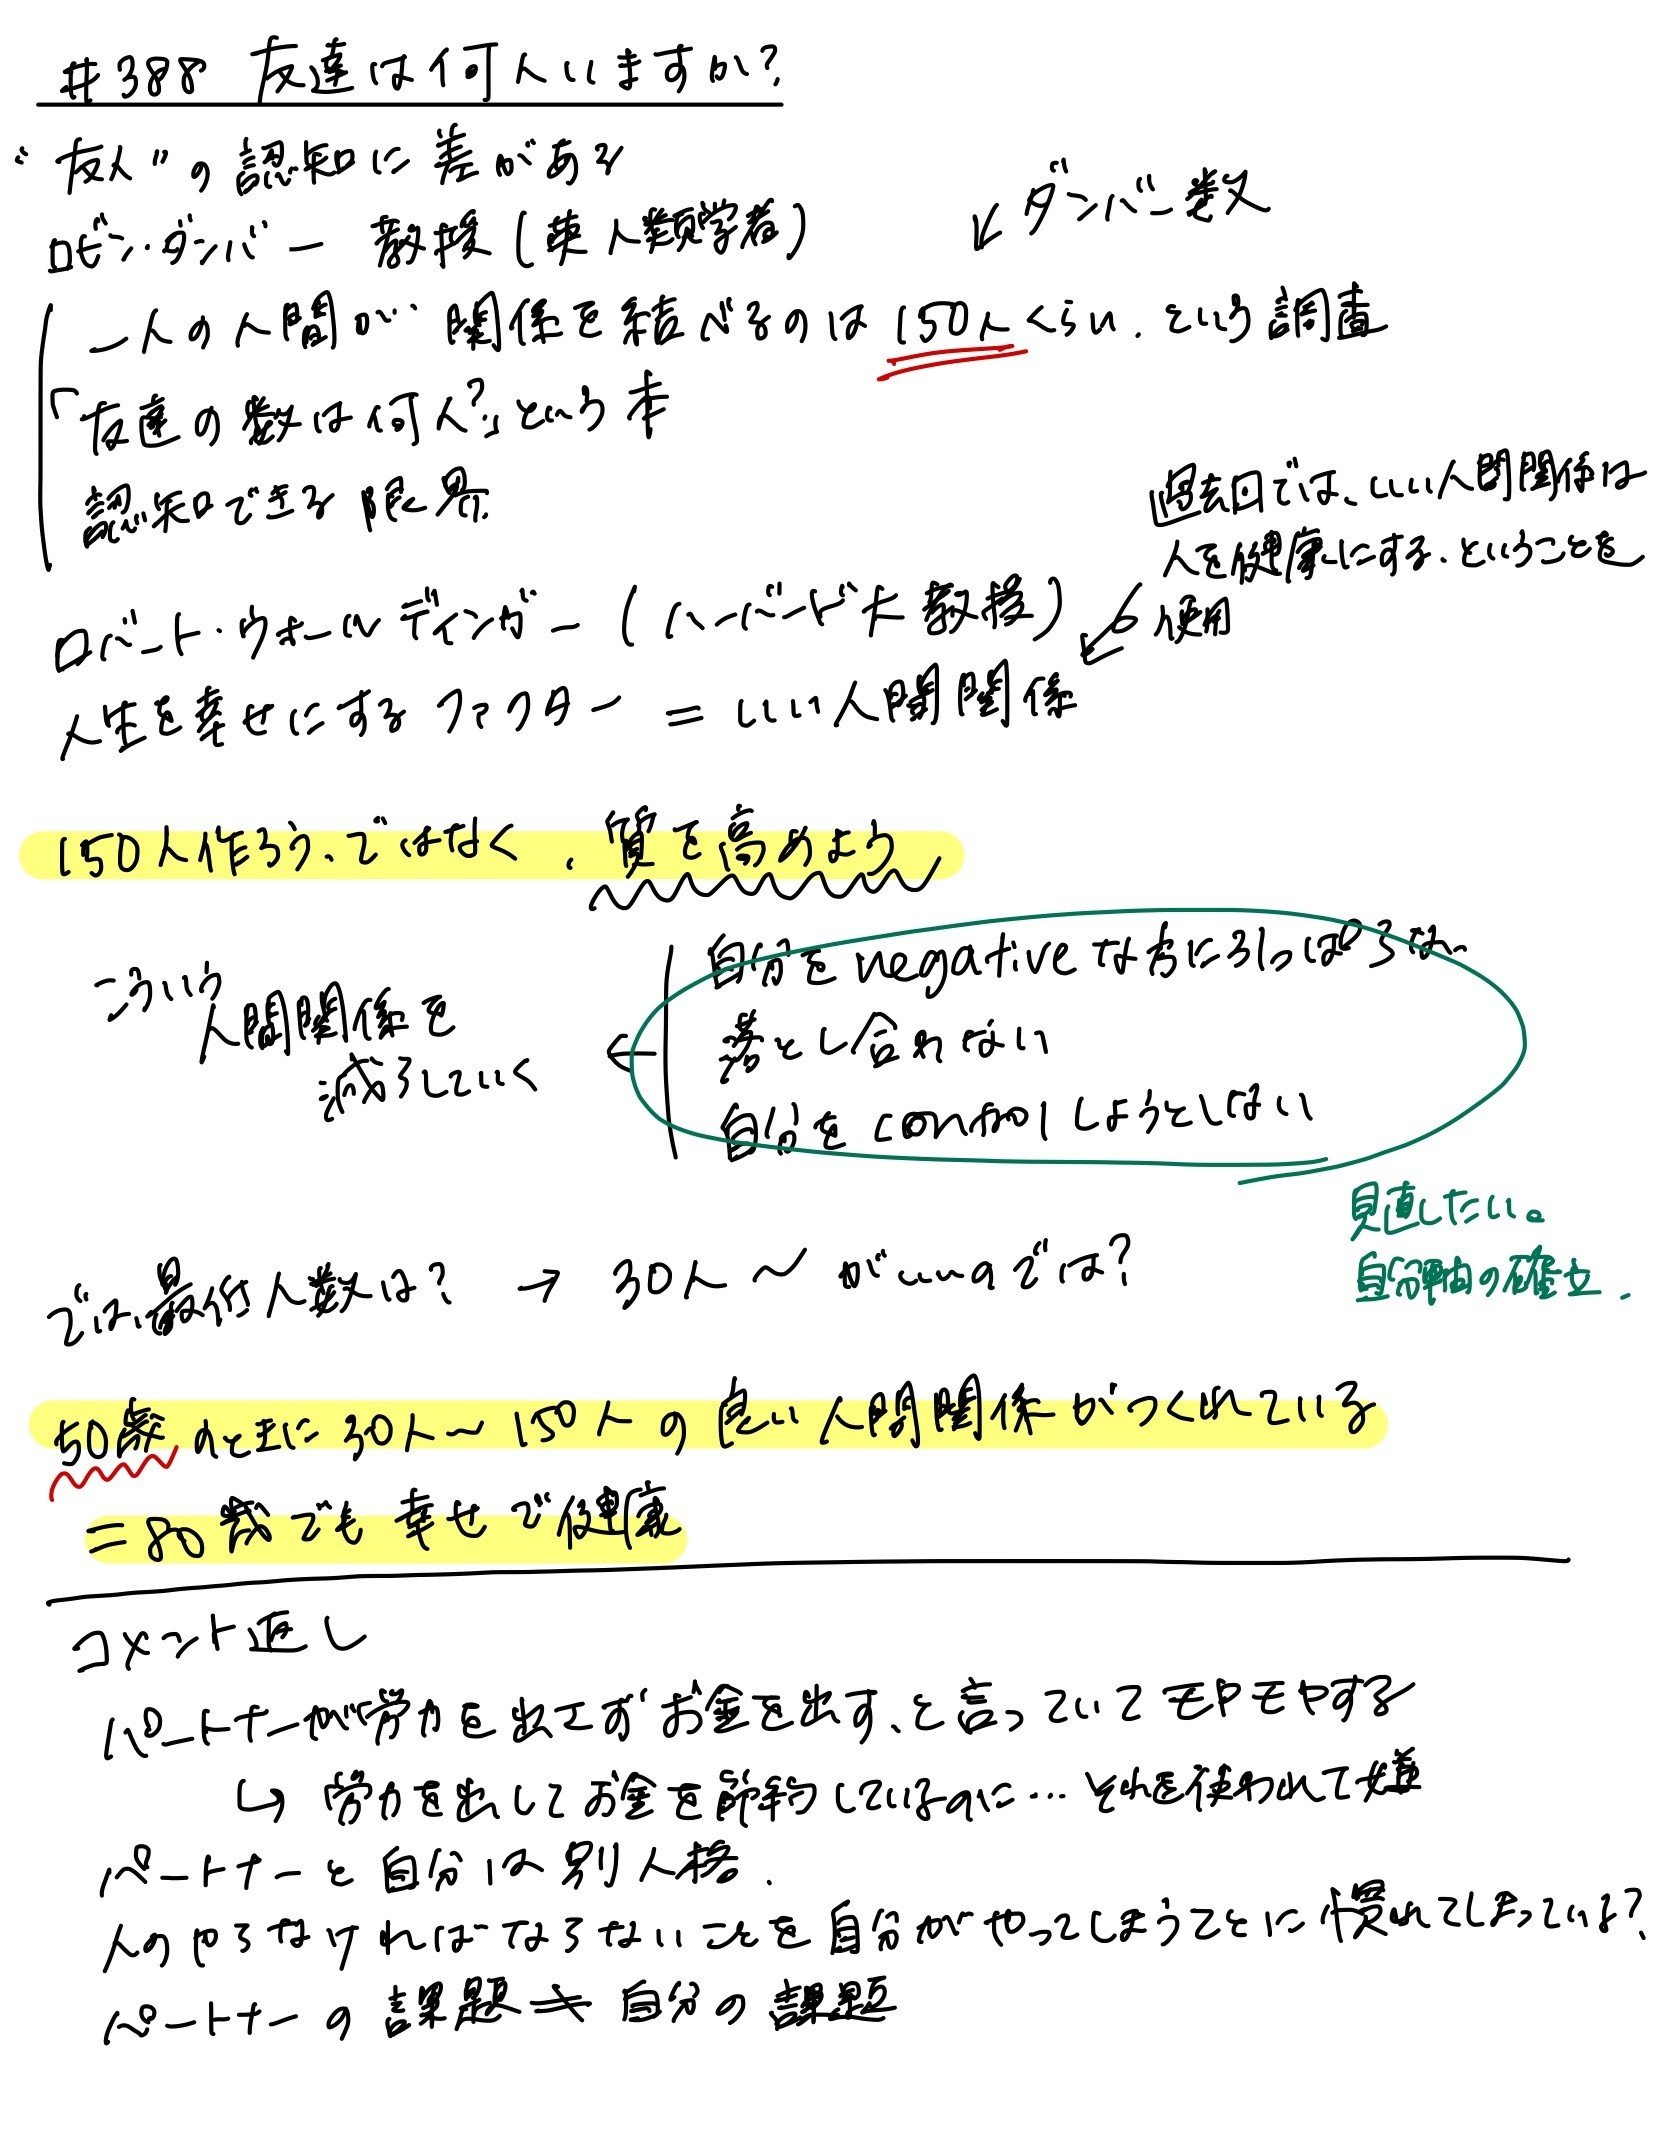 #388 友達は何人いますか?
"友人"の認知に差がある
ロビン・ダンバー 教授(英 人類学者)
↙ダンバー数
一人の人間が 関係を結べるのは150人くらい.という調査
「友達の数は何人?」という本
認知できる限界.
過去回では、いい人間関係は
人を健康にする.ということを
使用
ロバート・ウォールディンガー(ハーバード大教授)
人生を幸せにするファクター = いい人間関係
150人作ろう、ではなく、質を高めよう
自分をnegativeな方に引っぱらない
落とし合わない
自分をcontrolしようとしない
こういう
人間関係を
減らしていく ←
見直したい。
自分軸の確立.
では、最低人数は? → 30人〜がいいのでは?
50歳のときに30人〜150人の良い人間関係がつくれている
=80歳でも幸せで健康
コメント返し
パートナーが労力を出さずお金を出す、と言っていてモヤモヤする
↳ 労力を出してお金を節約しているのに…それを使われて嫌
パートナーと自分は別人格.
人のやらなければならないことを自分がやってしまうことに慣れてしまっている?
パートナーの課題≠自分の課題